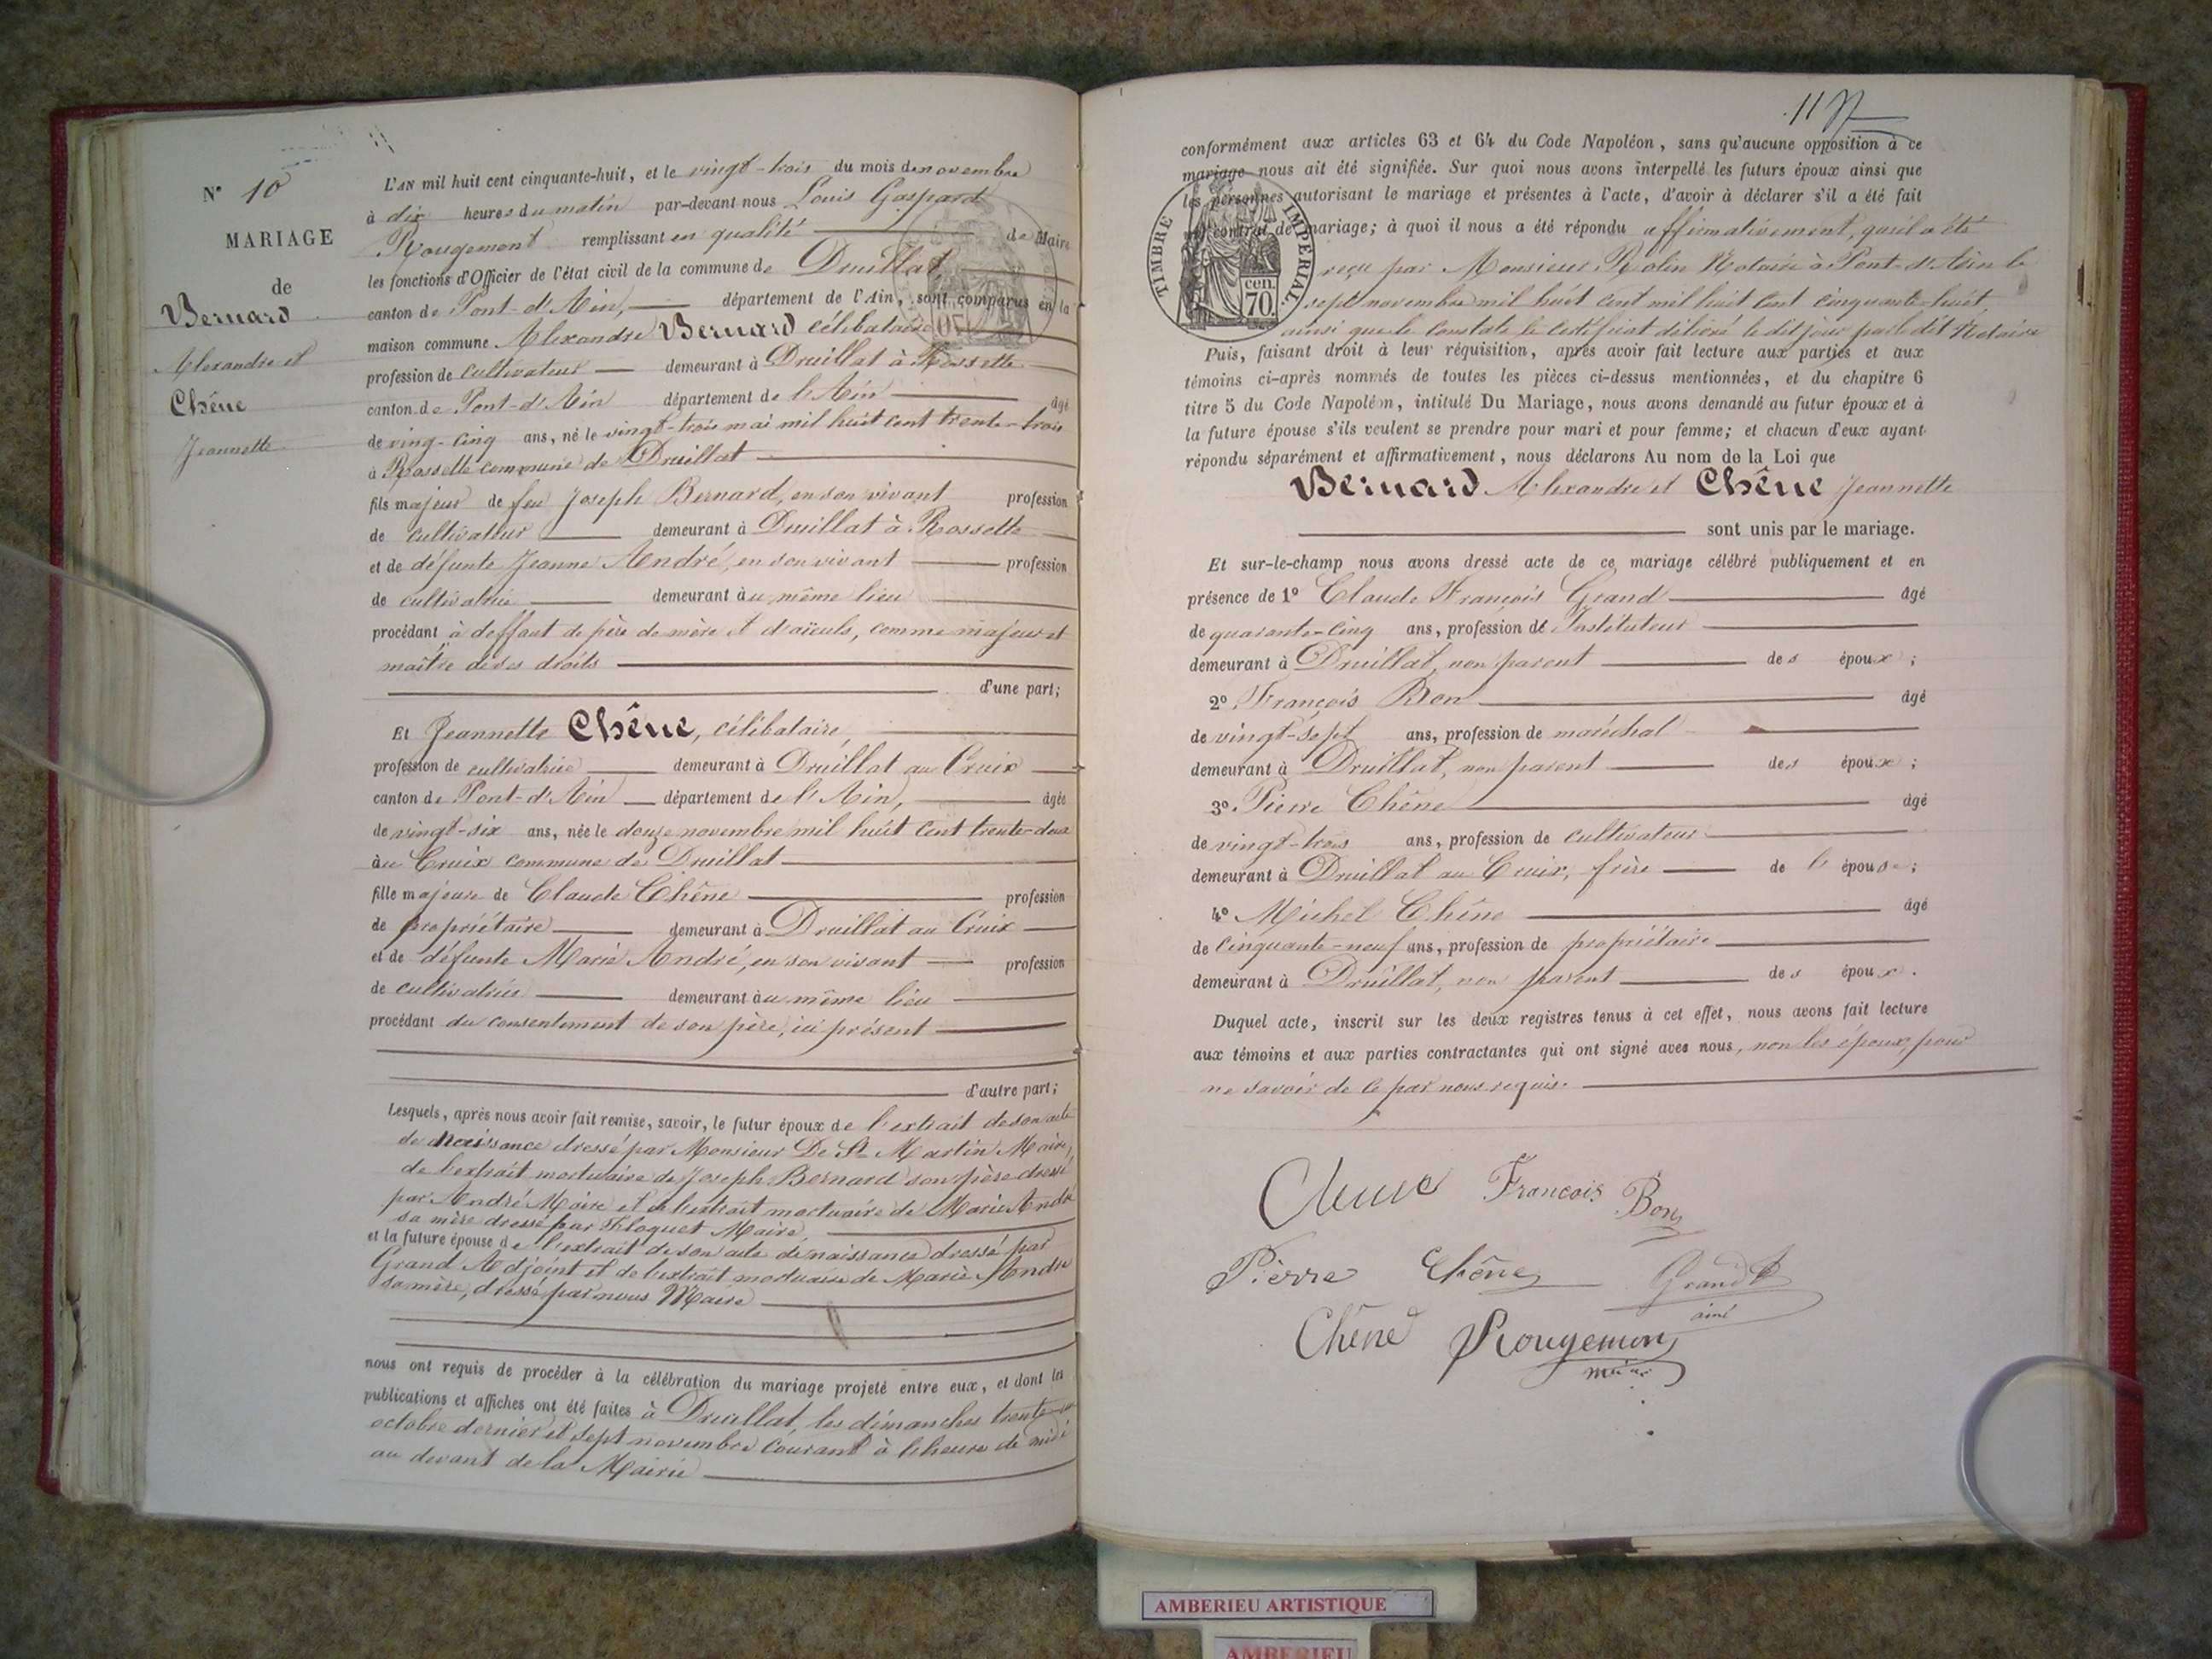 N° 10
MARIAGE
de
Bernard
Alexandre et
Chêne
Jeannette
L'AN mil huit cent cinquante-huit, et le vingt-trois du mois de novembre
à dix heures du matin par-devant nous Louis Gaspard
Rougemont remplissant en qualité de Maire
les fonctions d'Officier de l'état civil de la commune de Druillat,
canton de Pont-d'Ain, département de l'Ain, sont comparus en la
maison commune Alexandre Bernard célibataire
profession de cultivateur demeurant à Druillat à Rossette
canton de Pont-d'Ain département de l'Ain âgé
de ving-cinq ans, né le vingt-trois mai mil huit cent trente-trois
à Rossette commune de Druillat
fils majeur de feu Joseph Bernard, en son vivant profession
de cultivateur demeurant à Druillat à Rossette
et de défunte Jeanne André, en son vivant profession
de cultivatrice demeurant au même lieu
procédant à deffaut de père de mère et d'aïeuls, comme majeur et
maître de ses droits
d'une part;
Et Jeannette Chêne, célibataire,
profession de cultivatrice demeurant à Druillat au Cruix
canton de Pont-d'Ain département de l'Ain, âgée
de vingt-six ans, née le douze novembre mil huit cent trente-deux
au Cruix commune de Druillat
fille majeure de Claude Chêne profession
de propriétaire demeurant à Druillat au Cruix
et de défunte Marie André, en son vivant profession
de cultivatrice demeurant au même lieu
procédant du consentement de son père, ici présent
d'autre part;
Lesquels, après nous avoir fait remise, savoir, le futur époux de l'extrait de son acte
de naissance dressé par Monsieur De St Martin Maire,
de l'extrait mortuaire de Joseph Bernard son père dressé
par André Maire et de l'extrait mortuaire de Marie André
sa mère dressé par Floquet Maire,
et la future épouse de l'extrait de son acte de naissance dressé par
Grand Adjoint et de l'extrait mortuaire de Marie André
sa mère, dressé par nous Maire
nous ont requis de procéder à la célébration du mariage projeté entre eux, et dont les
publications et affiches ont été faites à Druillat, les dimanches trente-un
octobre dernier et sept novembre courant à l'heure de midi
au devant de la Mairie
117
conformément aux articles 63 et 64 du Code Napoléon, sans qu'aucune opposition à ce
mariage nous ait été signifiée. Sur quoi nous avons interpellé les futurs époux ainsi que
les personnes autorisant le mariage et présentes à l'acte, d'avoir à déclarer s'il a été fait
un contrat de mariage; à quoi il nous a été répondu affirmativement, qu'il a été
TIMBRE IMPERIAL
cen. 70.
reçu par Monsieur Rolin Notaire à Pont-d'Ain le
sept novembre mil huit cent mil huit cent cinquante-huit
ainsi que le constate le certificat délivré le dit jour par le dit Notaire
Puis, faisant droit à leur réquisition, après avoir fait lecture aux parties et aux
témoins ci-après nommés de toutes les pièces ci-dessus mentionnées, et du chapitre 6
titre 5 du Code Napoléon, intitulé Du Mariage, nous avons demandé au futur époux et à
la future épouse s'ils veulent se prendre pour mari et pour femme; et chacun d'eux ayant
répondu séparément et affirmativement, nous déclarons Au nom de la Loi que
Bernard Alexandre et Chêne Jeannette
sont unis par le mariage.
Et sur-le-champ nous avons dressé acte de ce mariage célébré publiquement et en
présence de 1° Claude François Grand âgé
de quarante-cinq ans, profession de Instituteur
demeurant à Druillat, non parent des époux;
2° François Bon âgé
de vingt-sept ans, profession de maréchal
demeurant à Druillat, non parent des époux;
3° Pierre Chêne âgé
de vingt-trois ans, profession de cultivateur
demeurant à Druillat au Cruix, frère de l'épouse;
4° Michel Chêne âgé
de cinquante-neuf ans, profession de propriétaire
demeurant à Druillat, non parent des époux.
Duquel acte, inscrit sur les deux registres tenus à cet effet, nous avons fait lecture
aux témoins et aux parties contractantes qui ont signé avec nous, non les époux, pour
ne savoir de ce par nous requis.
Chene François Bon
Pierre Chêne Grand
ainé
Chêne Rougemont
maire
AMBERIEU ARTISTIQUE
AMBERIEU